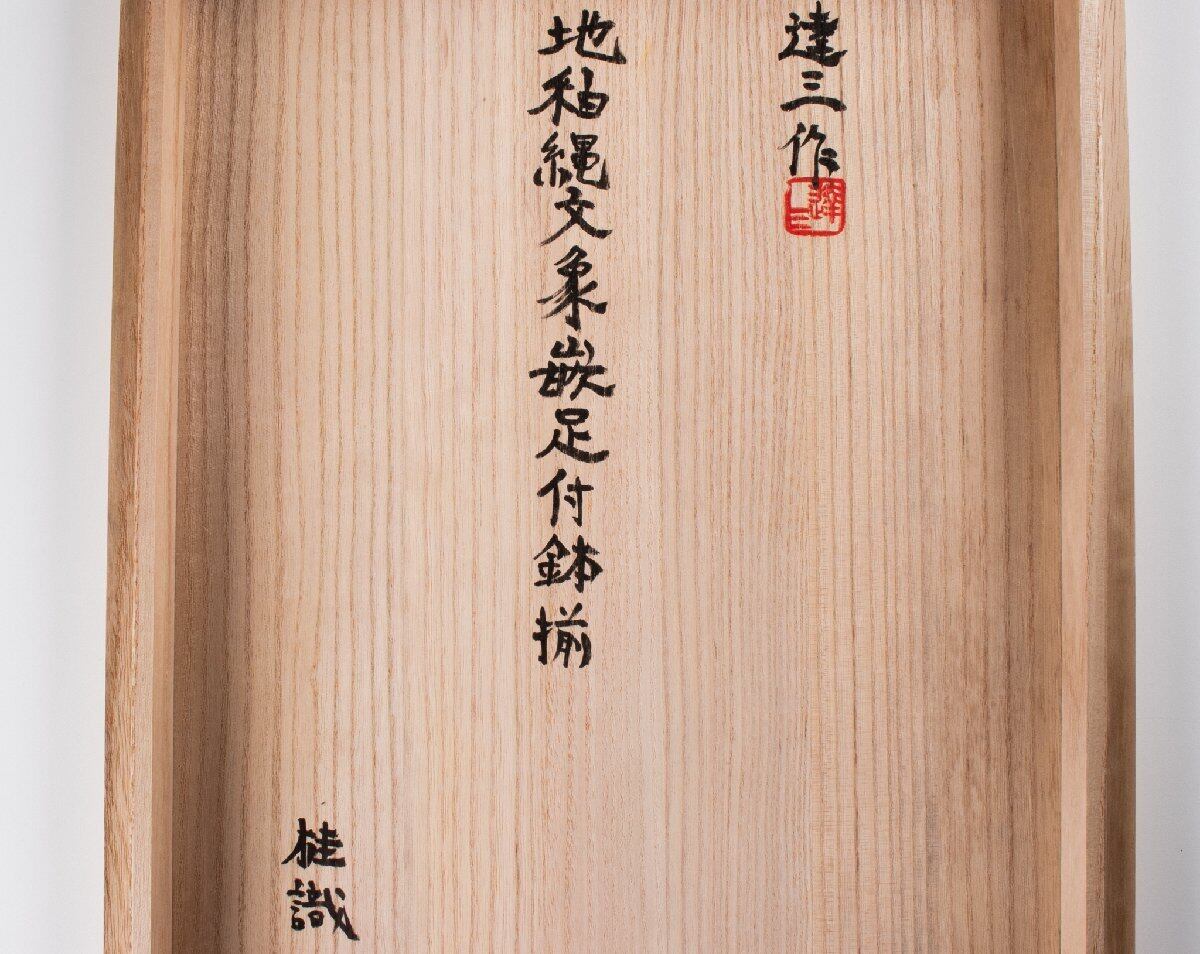 達三作
達三
地釉縄文象嵌足付鉢揃
桂識